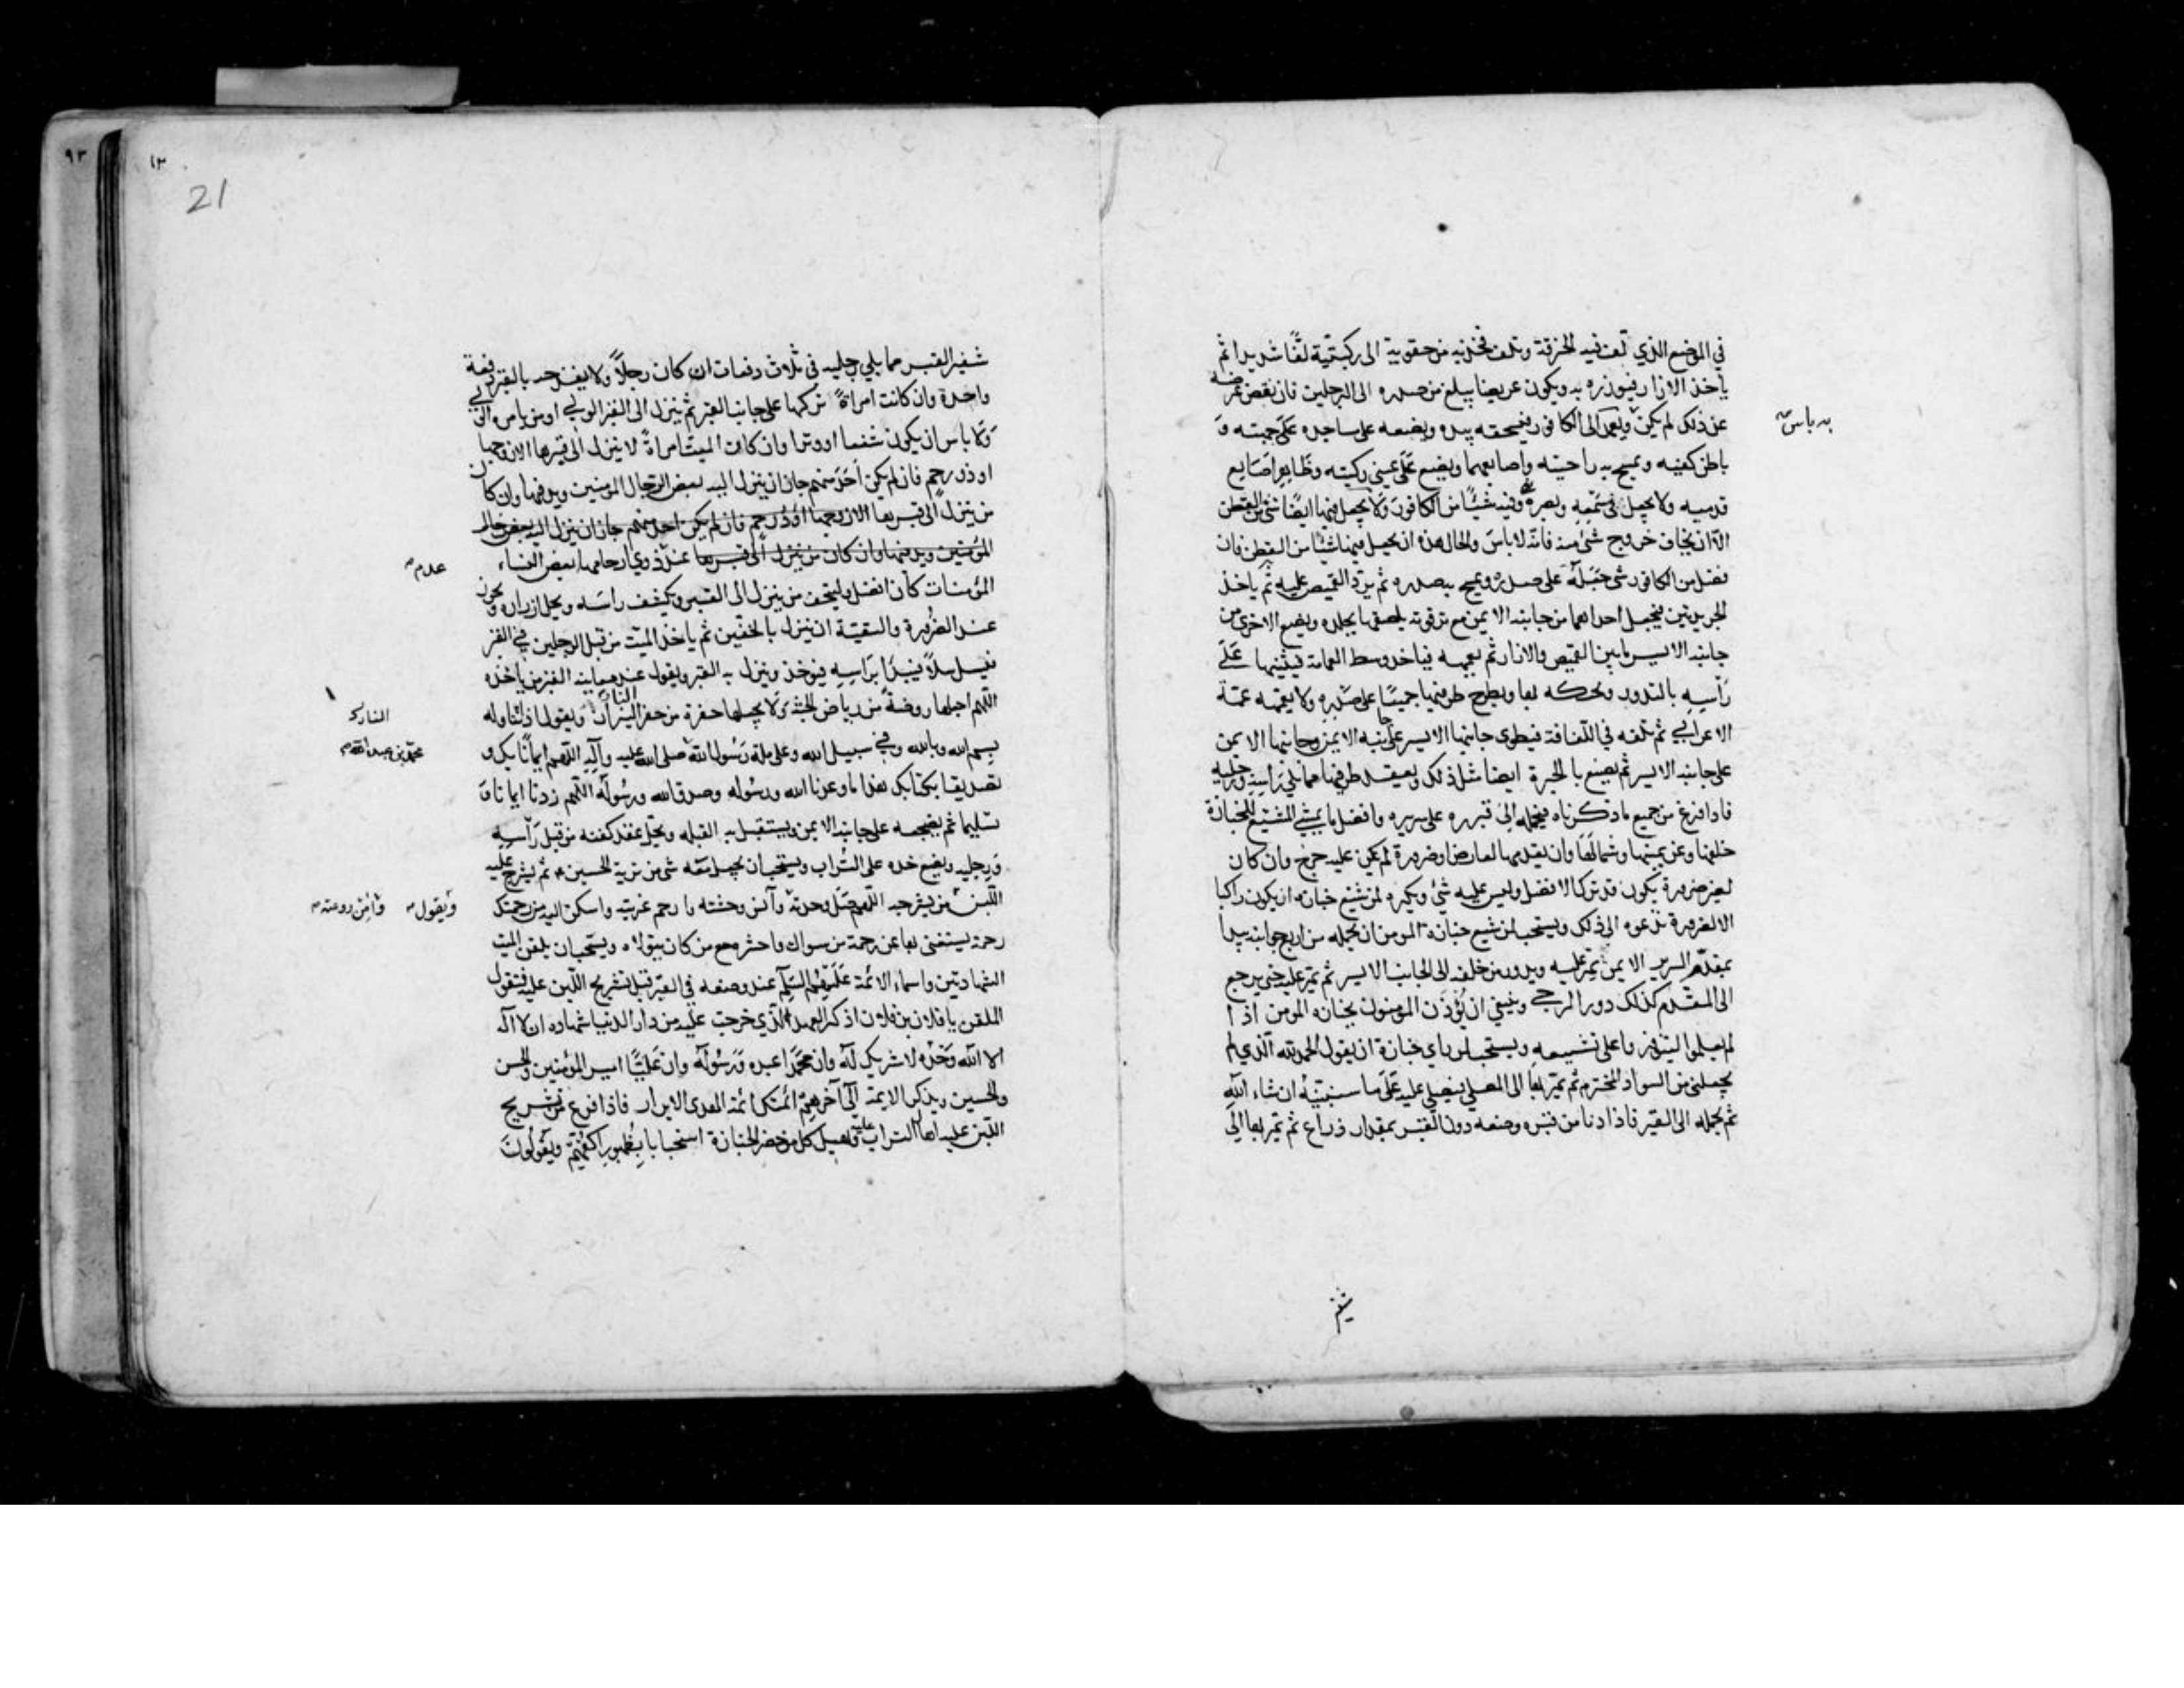 في الموضع الذي لف فيه الخرقة ويلف فخذيه من حقويه الى ركبتيه لفًا شديدا ثم
ياخذ الازار فيوزره به ويكون عريضا يبلغ من صدره الى الرجلين فان نقص عرضه
عن ذلك لم يكن ويعمد الى الكافور فيسحقه بيده ويضعه على مساجده على جبهته و
به باس
باطن كفيه ويمسح به راحتيه واصابعهما ويضع على عيني ركبتيه وظاهر اصابع
قدميه ولا يجعل في سمعه وبصره وفيه شيئًا من الكافور ولا يجعل فيها ايضًا شئ من القطن
الا ان يخاف خروج شئ منه فانه لا باس والحال هذه ان يجعل فيها شيئًا من القطن فان
فضل من الكافور شئ جعله على صدره ويمسح به صدره ثم يرد القميص عليه ثم ياخذ
الجريدتين فيجعل احداهما من جانبه الايمن مع ترقوته يلصقها بجلده ويضع الاخرى من
جانبه الايسر ما بين القميص والازار ثم يعممه فياخذ وسط العمامة فيثنيها على
رأسه بالتدوير ويحنكه بها ويطرح طرفيها جميعًا على صدره ولا يعممه عمة
الاعرابي ثم يلفه في اللفافة فيطوى جانبها الايسر على جانبه الايمن وجانبها الايمن
على جانبه الايسر ثم يصنع بالحبرة ايضا مثل ذلك ويعقد طرفيها مما يلي رأسه ورجليه
فاذا فرغ من جميع ما ذكرناه فيحمله الى قبره على سريره وافضل ما يمشي المشيع للجنازة
خلفها وعن يمينها وشمالها وان تقدمها لعارض او ضرورة لم يكن عليه حرج وان كان
لغير ضرورة يكون قد ترك الافضل وليس عليه شئ ويكره لمن شيع جنازه ان يكون راكبا
الا لضرورة تدعوه الى ذلك ويستحب لمن شيع جنازة المومن ان يحمله من اربع جوانبه يبدأ
بمقدم السرير الايمن يمر عليه ويدور من خلفه الى الجانب الايسر ثم يمر عليه حتى يرجع
الى المقدم كذلك دور الرحى وينبغي ان يُؤذن المومنون بجنازه المومن اذا
لم يعلموا ليتوفروا على تشييعه ويستحب لمن راى جنازة ان يقول الحمد لله الذي لم
يجعلني من السواد المخترم ثم يمر بها الى المصلي فيصلي عليه على ما سنبينه ان شاء الله
ثم يحمله الى القبر فاذا دنا من قبره وضعه دون القبر بمقدار ذراع ثم يمر بها الى
شفير
٩٣
١٣
21
شفير القبر مما يلي رجليه في ثلاث دفعات ان كان رجلًا ولا يفدحه بالقبر دفعة
واحدة وان كانت امراةً تركها على جانب القبر ثم ينزل الى القبر الولي او من يامره الولي
ولا باس ان يكون شفعا او وترا وان كان الميت امراةً لا ينزل الى قبرها الا زوجها
او ذو رحم فان لم يكن احد منهم جاز ان ينزل اليه بعض الرجال المومنين ويدفنها وان كان
من ينزل الى قبرها الا زوجها او ذو رحم فان لم يكن احد منهم جاز ان ينزل اليه بعض
المؤمنين ويدفنها وان كان من ينزل الى قبرها عند ذوي ارحامها بعض النساء
عدم
المؤمنات كان افضل وليتحف من ينزل الى القبر ويكشف راسه ويحل ازراره ويجوز
عند الضرورة والتقية ان ينزل بالخفين ثم ياخذ الميت من قبل الرجلين في القبر
فيسل سلًا فيبدأ براسه فيوخذ وينزل به القبر ويقول عند معاينه القبر من ياخذه
اللهم اجعلها روضةً من رياض الجنة ولا تجعلها حفرة من حفر النيران ويقول اذا تناوله
النار
بسم الله وبالله وفي سبيل الله وعلى ملة رسول الله صلى الله عليه وآله اللهم ايمانًا بك و
محمد بن عبد الله
تصديقا بكتابك هذا ما وعدنا الله ورسوله وصدق الله ورسوله اللهم زدنا ايمانا و
تسليما ثم يضجعه على جانبه الايمن ويستقبل به القبله ويحل عقد كفنه من قبل رأسه
ورجليه ويضع خده على التراب ويستحب ان يجعل معه شئ من تربة الحسين ثم يشرج عليه
اللبن من يشرجه اللهم صل وحدته وآنس وحشته وارحم غربته واسكن اليه من رحمتك
ويقول
وآمن روعته
رحمة يستغنى بها عن رحمة من سواك واحشره مع من كان يتولاه ويستحب ان يلقن الميت
الشهادتين واسماء الائمة عليهم السلم عند وضعه في القبر قبل تشريج اللبن عليه فيقول
الملقن يا فلان بن فلان اذكر العهد الذي خرجت عليه من دار الدنيا شهادة ان لا اله
الا الله وحده لا شريك له وان محمدًا عبده ورسوله وان عليًا امير المؤمنين والحسن
والحسين ويذكر الايمة الى آخرهم ائمتك ائمة الهدى الابرار فاذا فرغ من تشريج
اللبن عليه اهال التراب عليه ويهيل كل من حضر الجنازة استحبابا بظهور اكفهم ويقولون